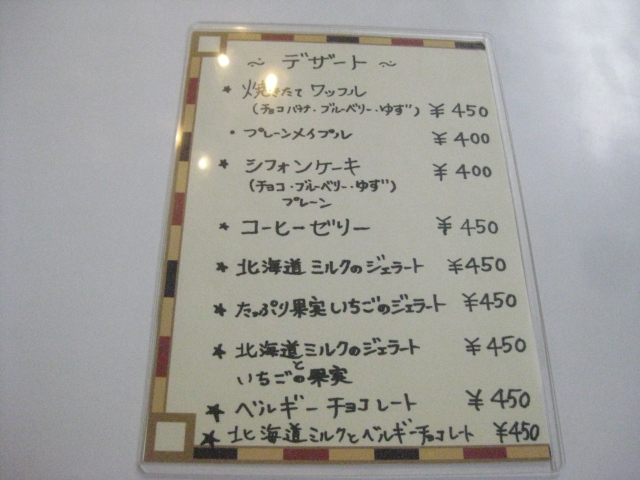 ～ デザート ～
★ 焼きたて ワッフル
(チョコバナナ・ブルーベリー・ゆず) ¥450
・ プレーンメイプル ¥400
★ シフォンケーキ ¥400
(チョコ・ブルーベリー・ゆず)
プレーン
★ コーヒーゼリー ¥450
★ 北海道ミルクのジェラート ¥450
★ たっぷり果実いちごのジェラート ¥450
★ 北海道ミルクのジェラート ¥450
と
いちごの果実
★ ベルギーチョコレート ¥450
★ 北海道ミルクとベルギーチョコレート ¥450